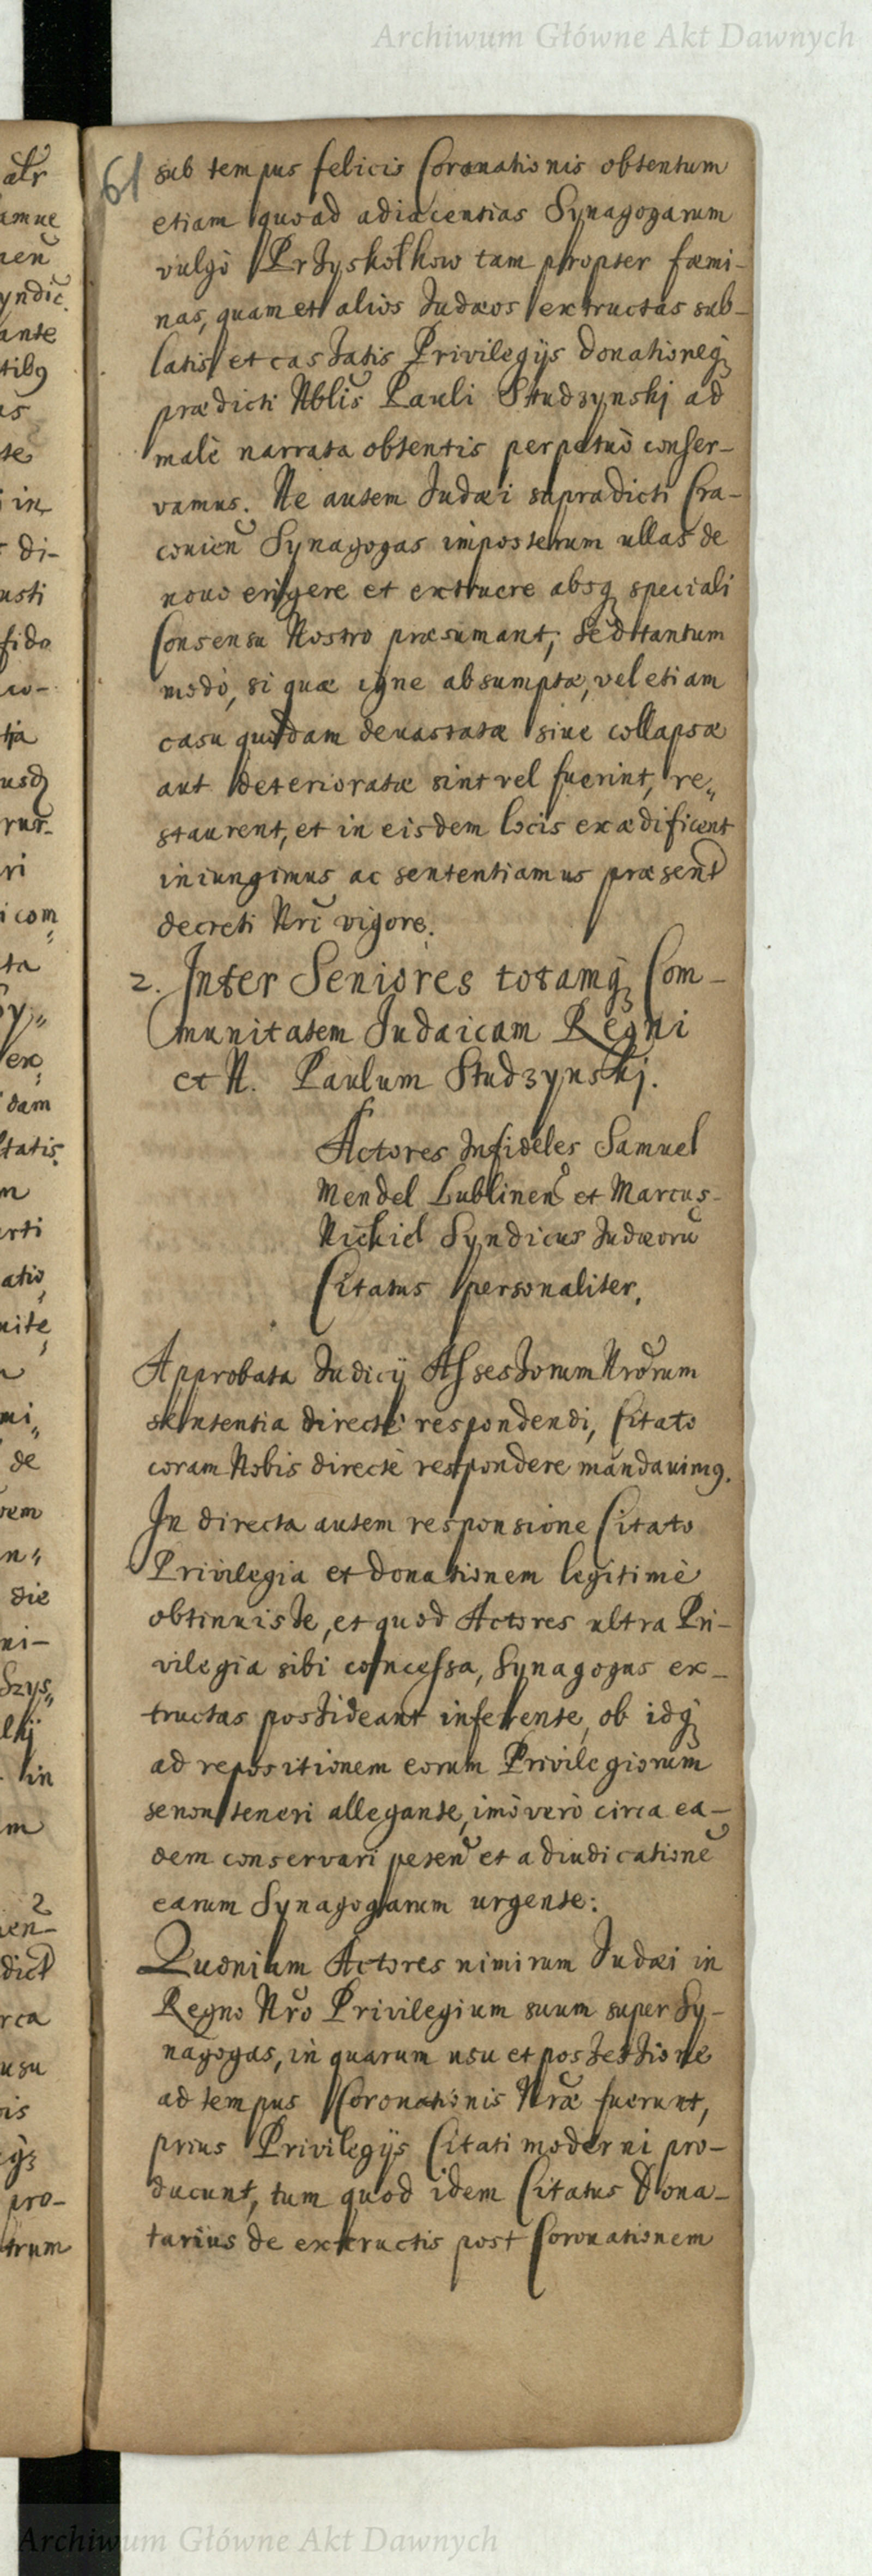 Archiwum Główne Akt Dawnych
61
sub tempus felicis Coronationis obtentum
etiam quoad adiacentias Synagogarum
vulgò Przyskołkow tam propter fæmi-
nas, quam et alios Judæos extructas sub-
latis et cassatis Privilegijs donationeq́;
prædicti Nblis Pauli Studzynskj ad
malè narrata obtentis perpetuò conser-
vamus. Ne autem Judæi supradicti Cra-
covien Synagogas imposterum ullas de
novo erigere et extruere absq; speciali
Consensu Nostro præsumant, sed tantum
modò, si quæ igne absumptæ, vel etiam
casu quodam devastatæ siue collapsæ
aut deterioratæ sint vel fuerint, re„
staurent, et in eisdem locis exædificent
iniungimus ac sententiamus præsent
decreti Nri vigore.
2. Inter Seniores totamq́; Com-
munitatem Judaicam Regni
et N. Paulum Studzynskj.
Actores Infideles Samuel
Mendel Lublinen et Marcus
Nickiel Syndicus Judæorū
Citatus personaliter.
Approbata Judicij Assessorum Nrorum
sententia directè respondendi, Citato
coram Nobis directè respondere mandavimq.
In directa autem responsione Citato
Privilegia et donationem legitimè
obtinuisse, et quod Actores ultra Pri-
vilegia sibi concessa, Synagogas ex-
tructas possideant inferente, ob idq́;
ad repositionem eorum Privilegiorum
se non teneri allegante, imò verò circa ea-
dem conservari peten et adiudicationē
earum Synagogarum urgente:
Quoniam Actores nimirum Judæi in
Regno Nro Privilegium suum super Sy-
nagogas, in quarum usu et possessione
ad tempus Coronationis Nræ fuerunt,
prius Privilegijs Citati moderni pro-
ducunt, tum quod idem Citatus Dona-
tarius de extructis post Coronationem
Archiwum Główne Akt Dawnych